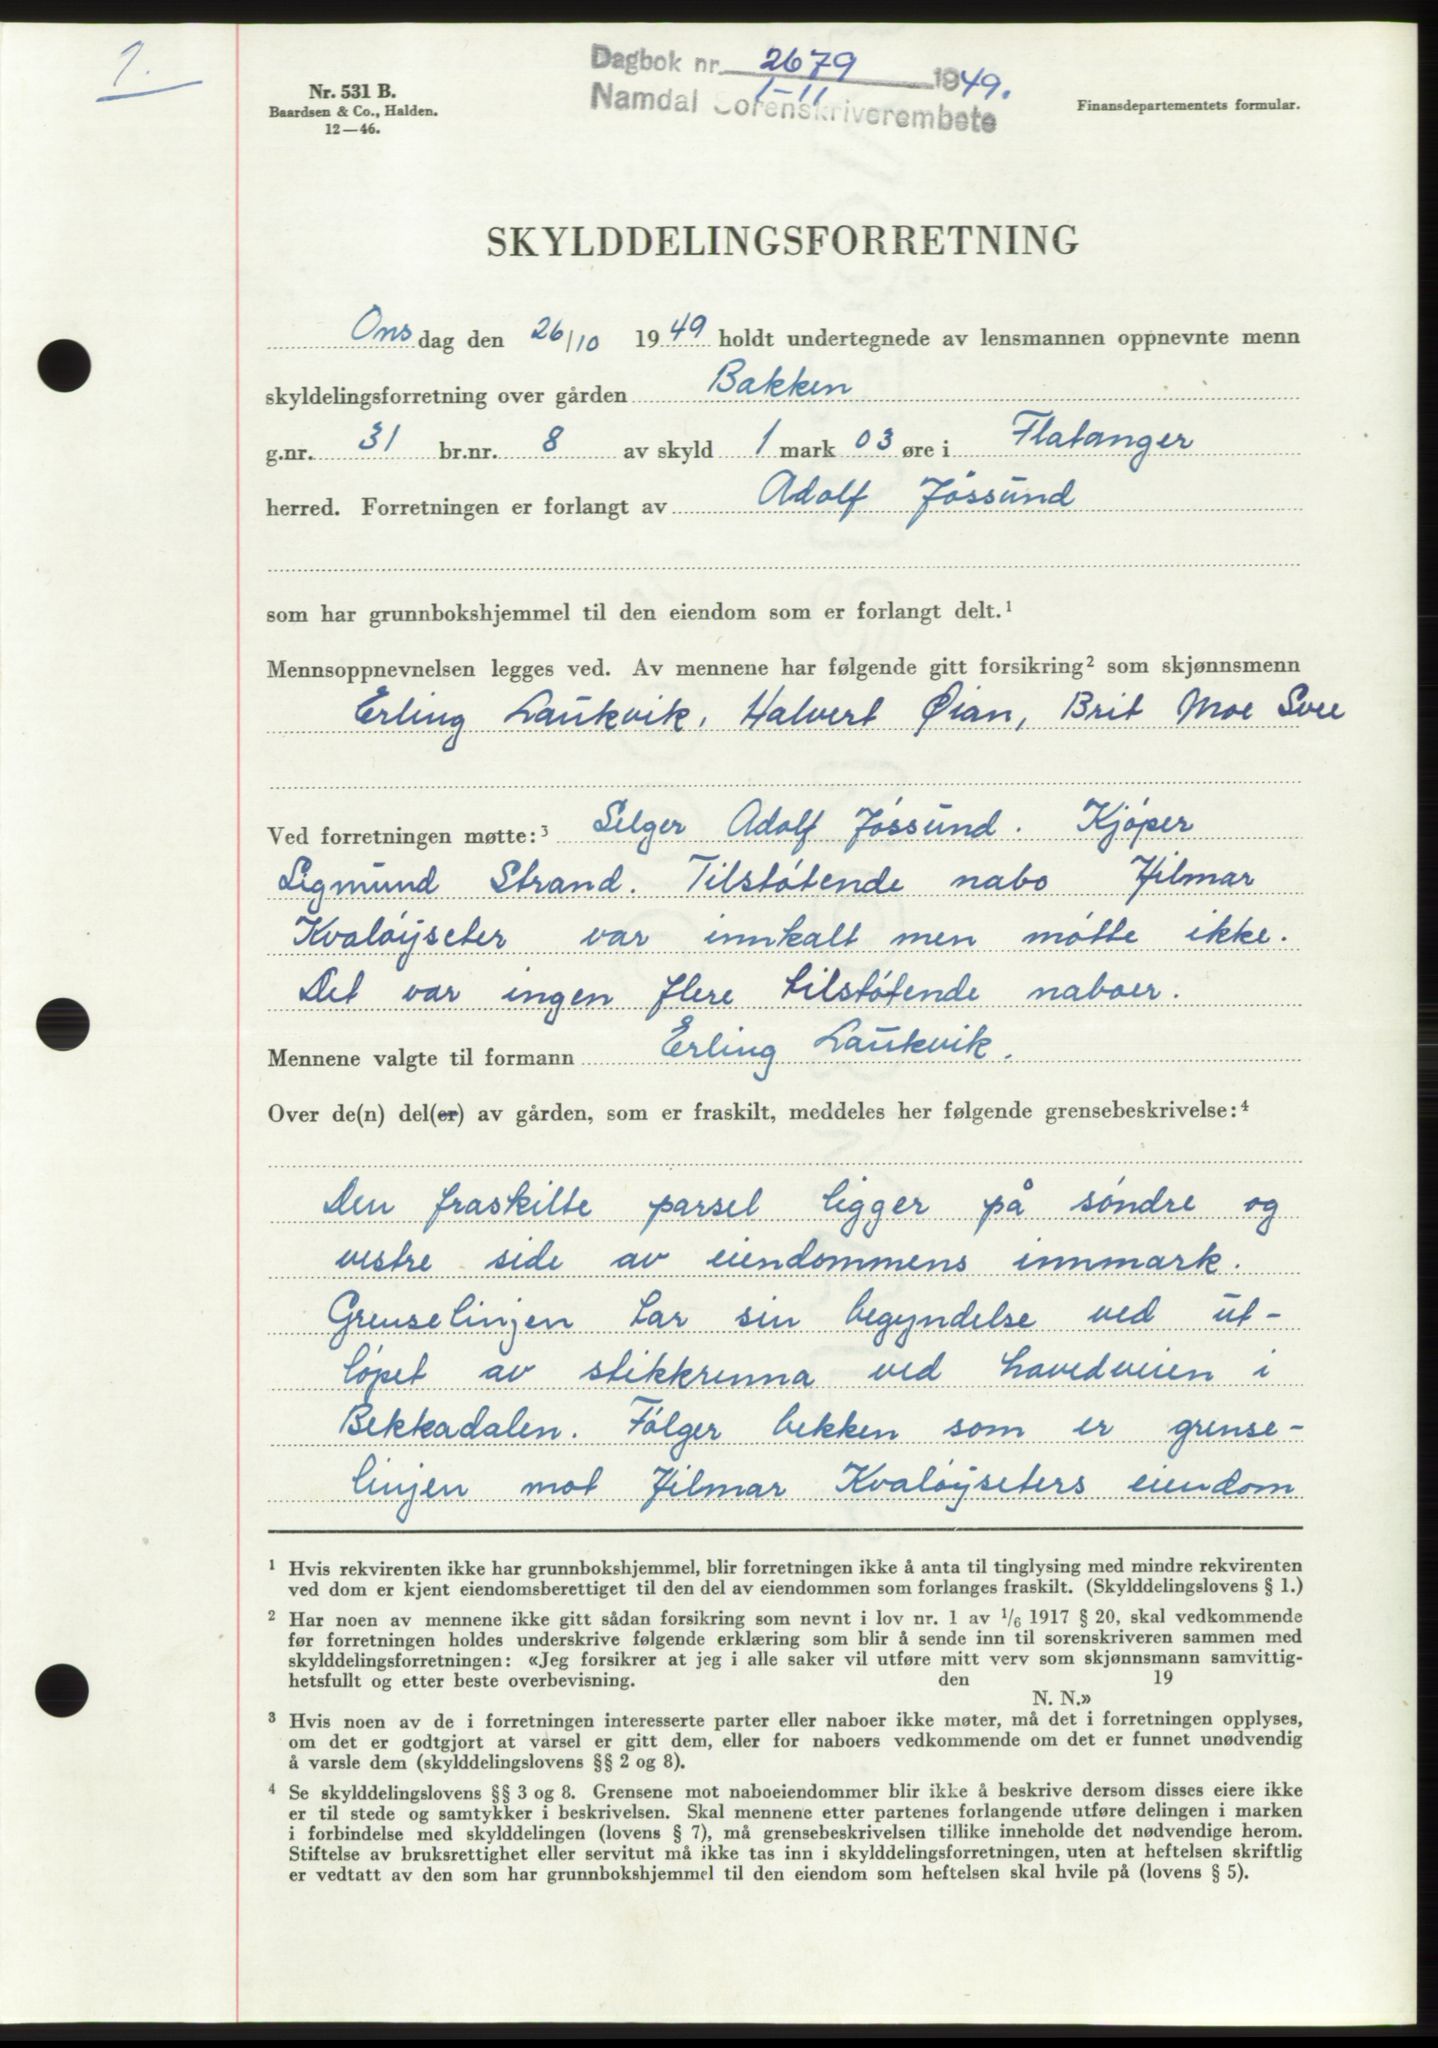 1.
Nr. 531 B.
Baardsen & Co., Halden.
12—46.
Dagbok nr. 2679 1949.
1-11
Namdal Sorenskriverembete
Finansdepartementets formular.
SKYLDDELINGSFORRETNING
Onsdag den 26/10 1949 holdt undertegnede av lensmannen oppnevnte menn
skyldelingsforretning over gården Bakken
g.nr. 31 br.nr. 8 av skyld 1 mark 03 øre i Flatanger
herred. Forretningen er forlangt av Adolf Jøssund
som har grunnbokshjemmel til den eiendom som er forlangt delt.¹
Mennsoppnevnelsen legges ved. Av mennene har følgende gitt forsikring² som skjønnsmenn
Erling Laukvik, Halvert Øian, Brit Moe Svee
Ved forretningen møtte:³ Selger Adolf Jøssund. Kjøper
Sigmund Strand. Tilstøtende nabo Hilmar
Kvaløyseter var innkalt men møtte ikke.
Det var ingen flere tilstøtende naboer.
Mennene valgte til formann Erling Laukvik.
Over de(n) del(er) av gården, som er fraskilt, meddeles her følgende grensebeskrivelse:⁴
Den fraskilte parsel ligger på søndre og
vestre side av eiendommens innmark.
Grenselinjen tar sin begyndelse ved ut-
løpet av stikkrenna ved havedveien i
Bekkadalen. Følger bekken som er grense-
linjen mot Hilmar Kvaløyseters eiendom
¹ Hvis rekvirenten ikke har grunnbokshjemmel, blir forretningen ikke å anta til tinglysing med mindre rekvirenten
ved dom er kjent eiendomsberettiget til den del av eiendommen som forlanges fraskilt. (Skylddelingslovens § 1.)
² Har noen av mennene ikke gitt sådan forsikring som nevnt i lov nr. 1 av 1/6 1917 § 20, skal vedkommende
før forretningen holdes underskrive følgende erklæring som blir å sende inn til sorenskriveren sammen med
skylddelingsforretningen: «Jeg forsikrer at jeg i alle saker vil utføre mitt verv som skjønnsmann samvittig-
hetsfullt og etter beste overbevisning. den 19
N. N.»
³ Hvis noen av de i forretningen interesserte parter eller naboer ikke møter, må det i forretningen opplyses,
om det er godtgjort at varsel er gitt dem, eller for naboers vedkommende om det er funnet unødvendig
å varsle dem (skylddelingslovens §§ 2 og 8).
⁴ Se skylddelingslovens §§ 3 og 8. Grensene mot naboeiendommer blir ikke å beskrive dersom disses eiere ikke
er til stede og samtykker i beskrivelsen. Skal mennene etter partenes forlangende utføre delingen i marken
i forbindelse med skylddelingen (lovens § 7), må grensebeskrivelsen tillike inneholde det nødvendige herom.
Stiftelse av bruksrettighet eller servitut må ikke tas inn i skylddelingsforretningen, uten at heftelsen skriftlig
er vedtatt av den som har grunnbokshjemmel til den eiendom som heftelsen skal hvile på (lovens § 5).